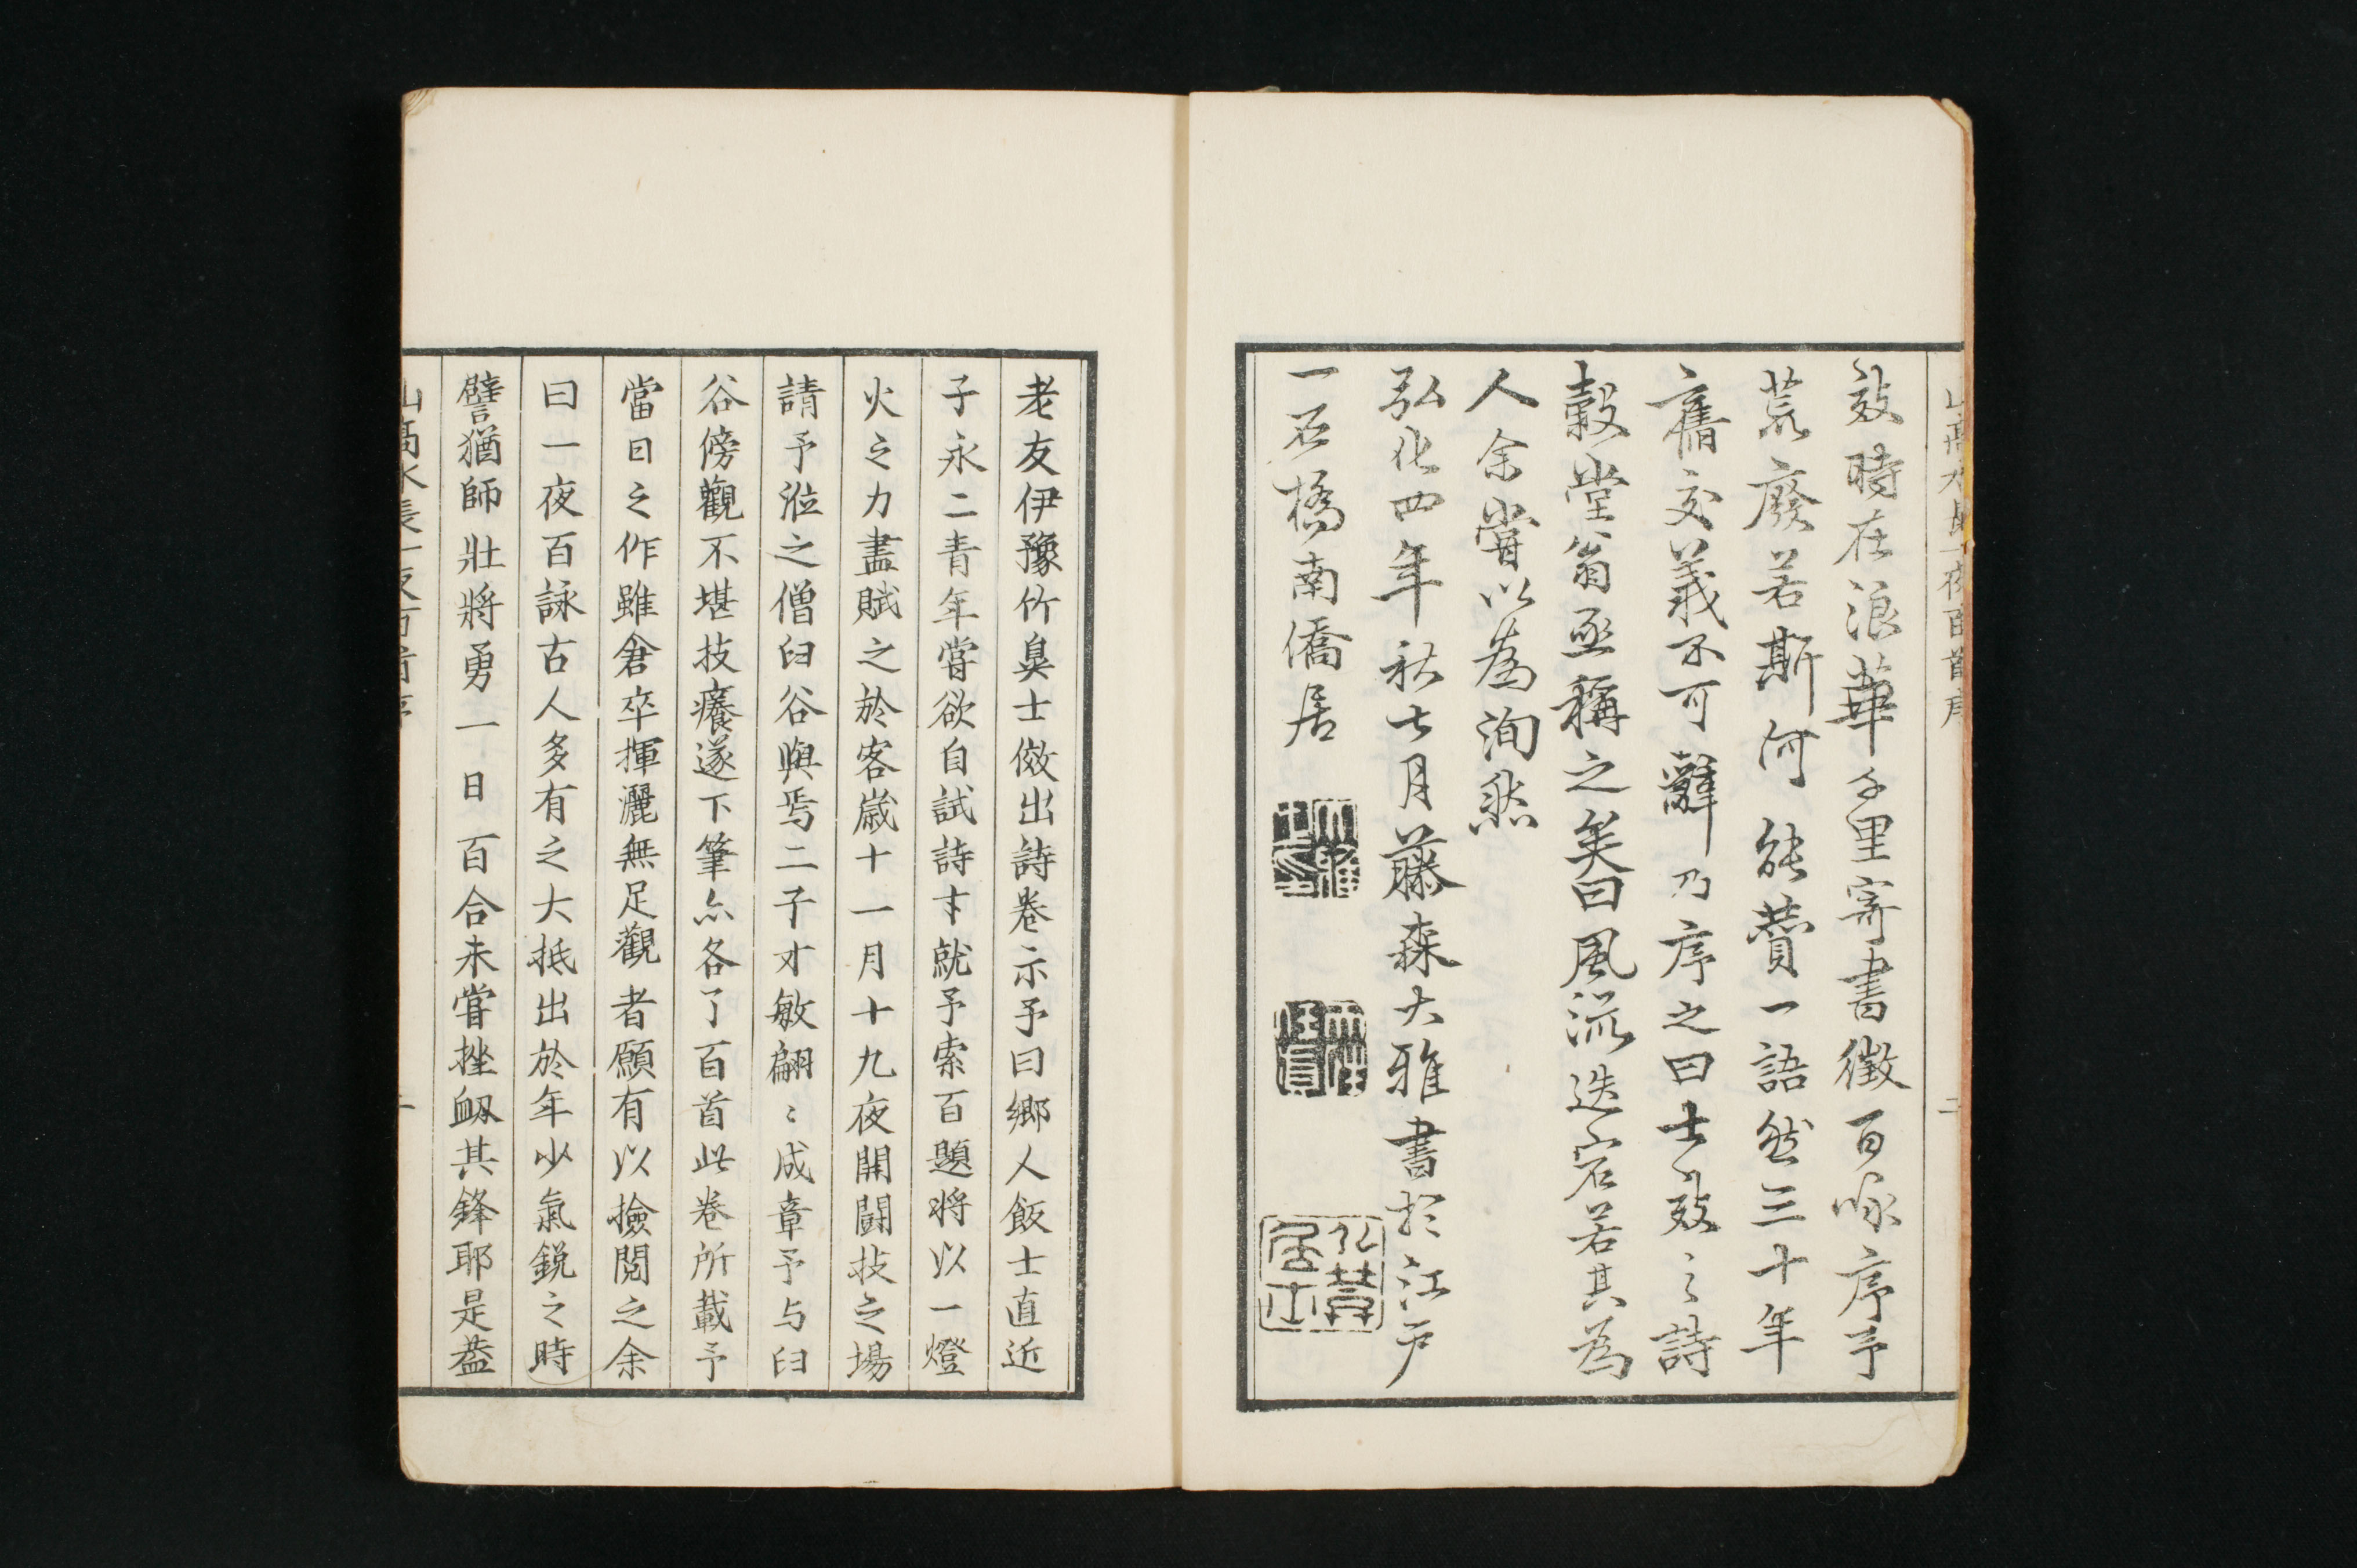 山高水長一夜百首序
二
效時在浪華千里寄書徵百咏序予
荒廢若斯何能贊一語然三十年
舊交義不可辭乃序之曰士效之詩
穀堂翁亟稱之矣曰風流迭宕若其為
人余嘗以為洵然
弘化四年秋七月藤森大雅書於江戸
一石橋南僑居
老友伊豫竹臭士俲出詩卷示予曰鄉人飯士直近
子永二青年嘗欲自試詩才就予索百題將以一燈
火之力盡賦之於客歲十一月十九夜開闘技之場
請予涖之僧臼谷與焉二子才敏翩〻成章予与臼
谷傍觀不堪技癢遂下筆亦各了百首此卷所載予
當日之作雖倉卒揮灑無足觀者願有以撿閱之余
曰一夜百詠古人多有之大抵出於年少氣銳之時
譬猶師壯將勇一日百合未嘗挫衂其鋒耶是蓋
山高水長一夜百首序
一